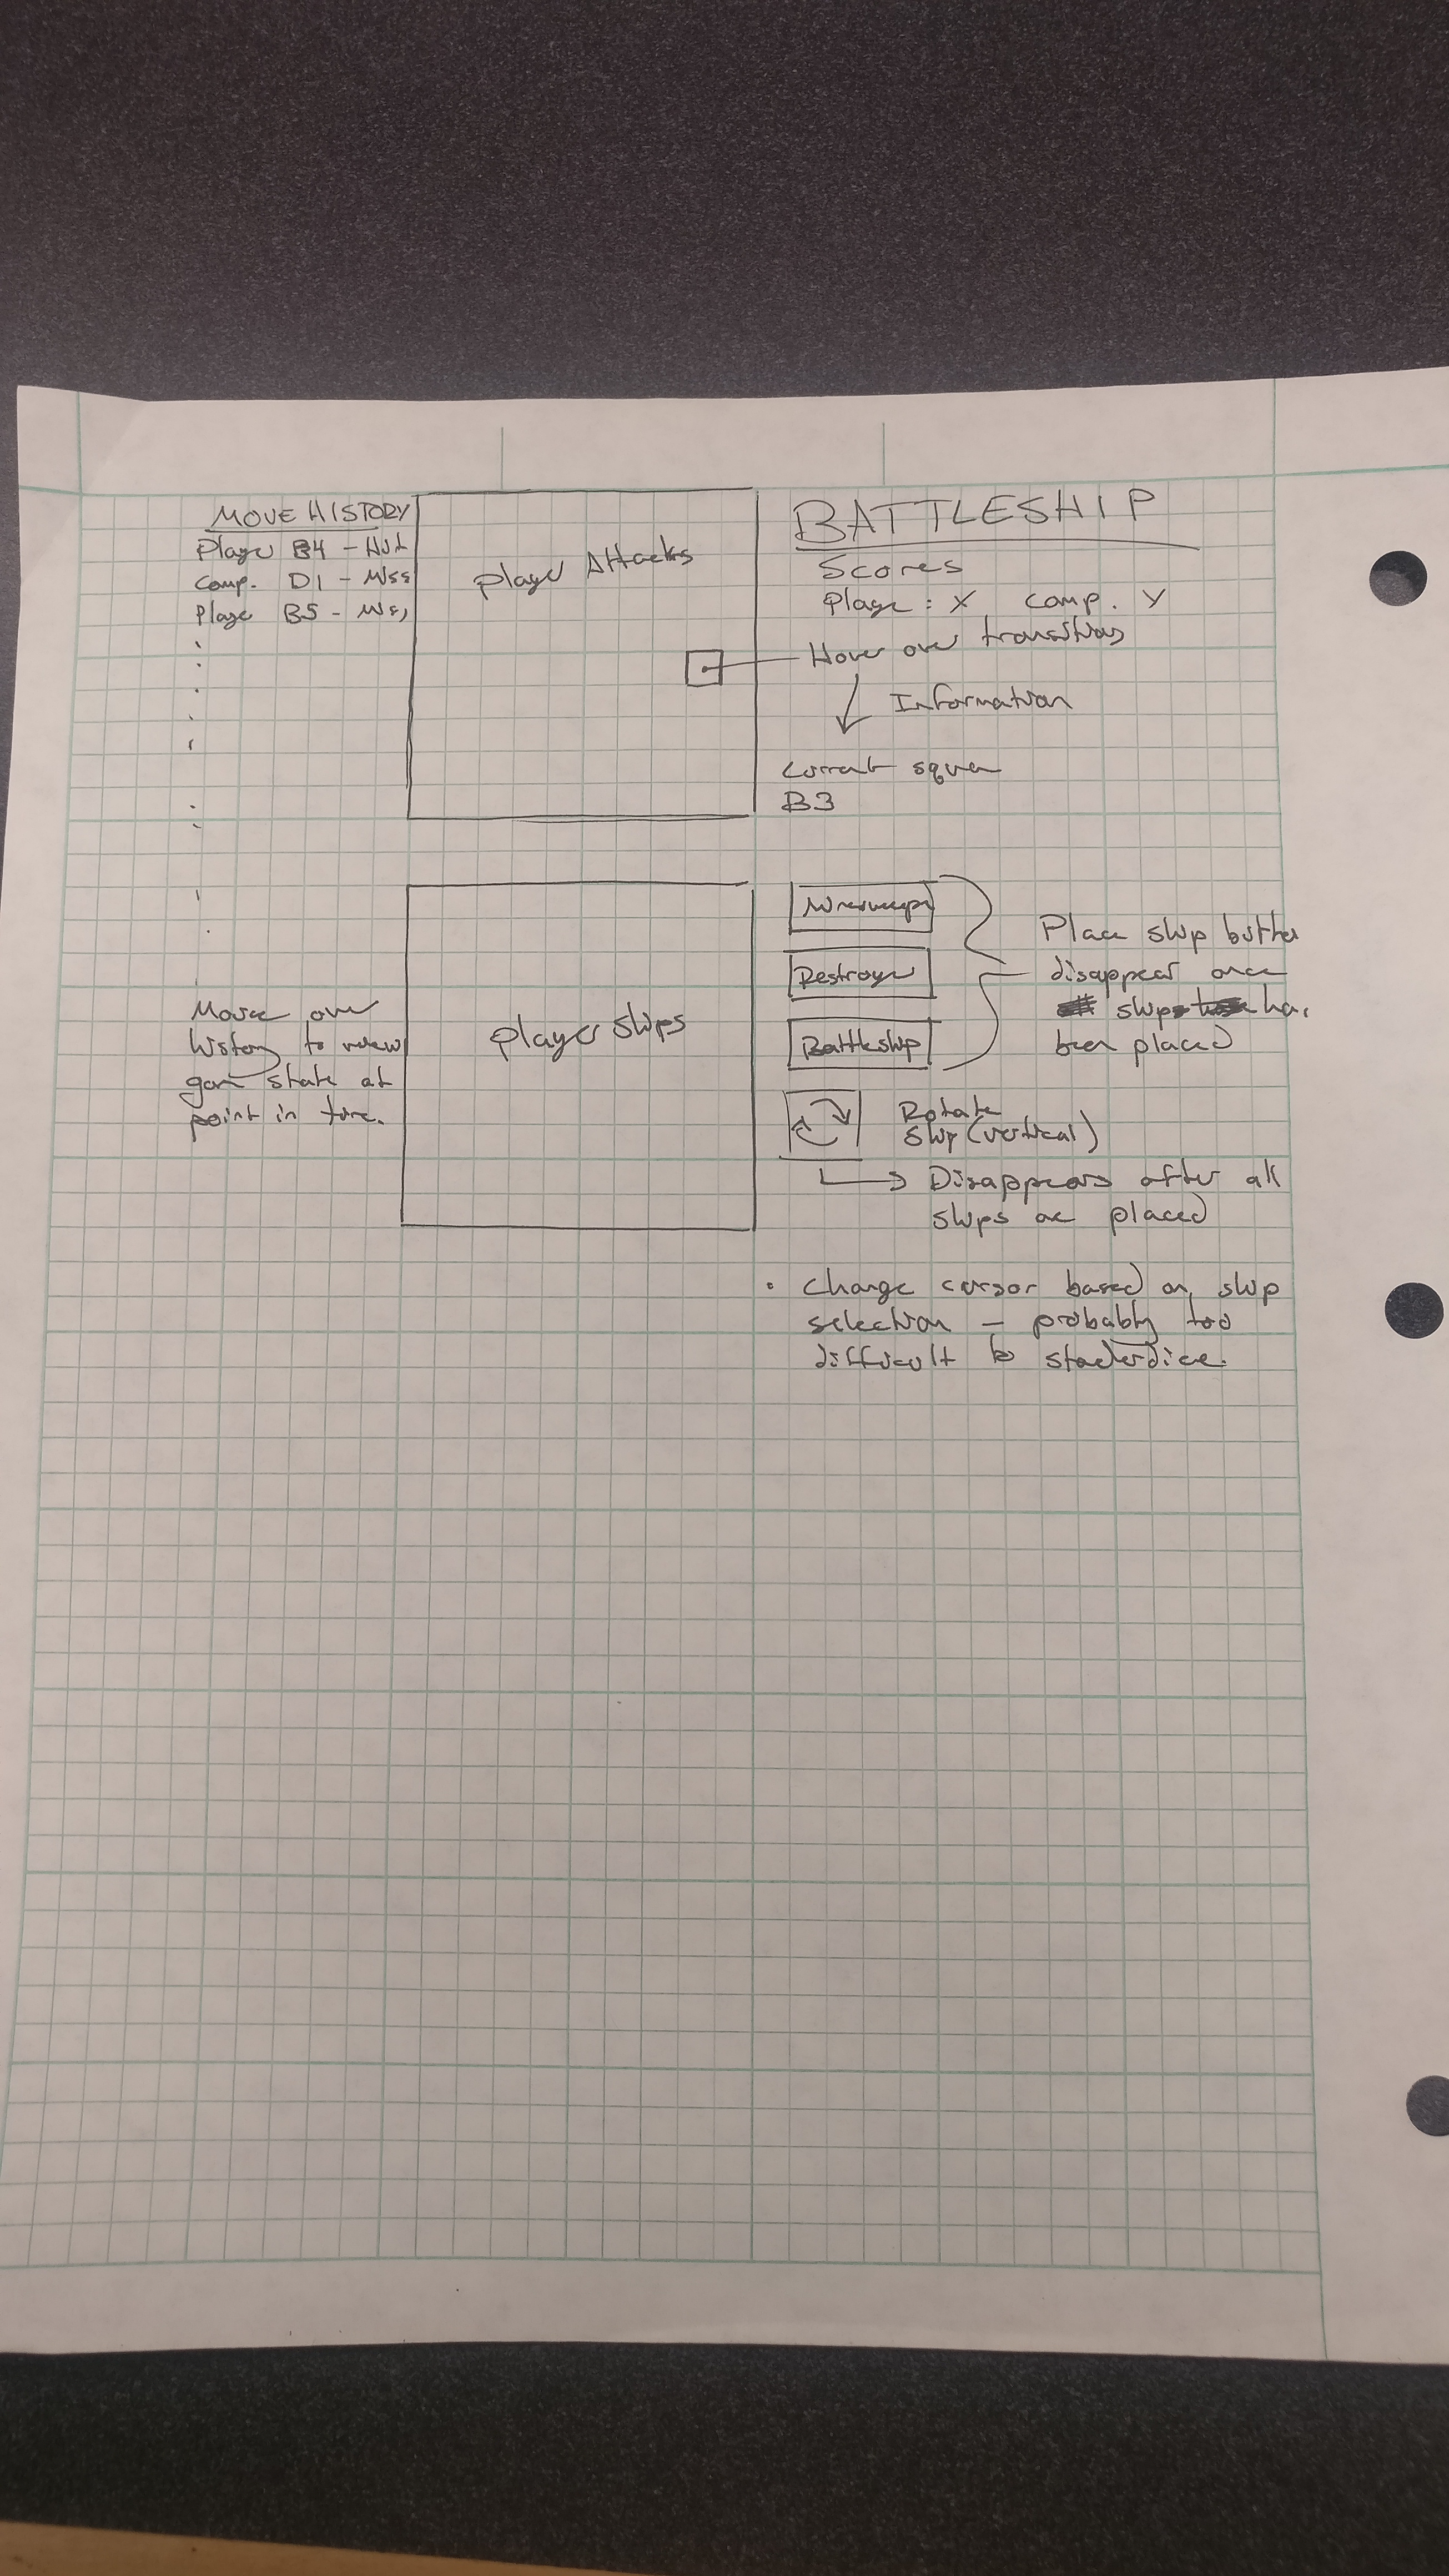 MOVE HISTORY
Player B4 - Hit
Comp. D1 - Miss
Player B5 - Miss
Mouse over
history to review
game state at
point in time.
Player Attacks
Player Ships
BATTLESHIP
Scores
Player : X comp. Y
Hover over transitions
Information
Current square
B3
Minesweeper
Destroyer
Battleship
Place ship button
disappear once
ship has
been placed
Rotate
Ship (vertical)
Disappears after all
ships are placed
• Change cursor based on ship
selection - probably too
difficult to